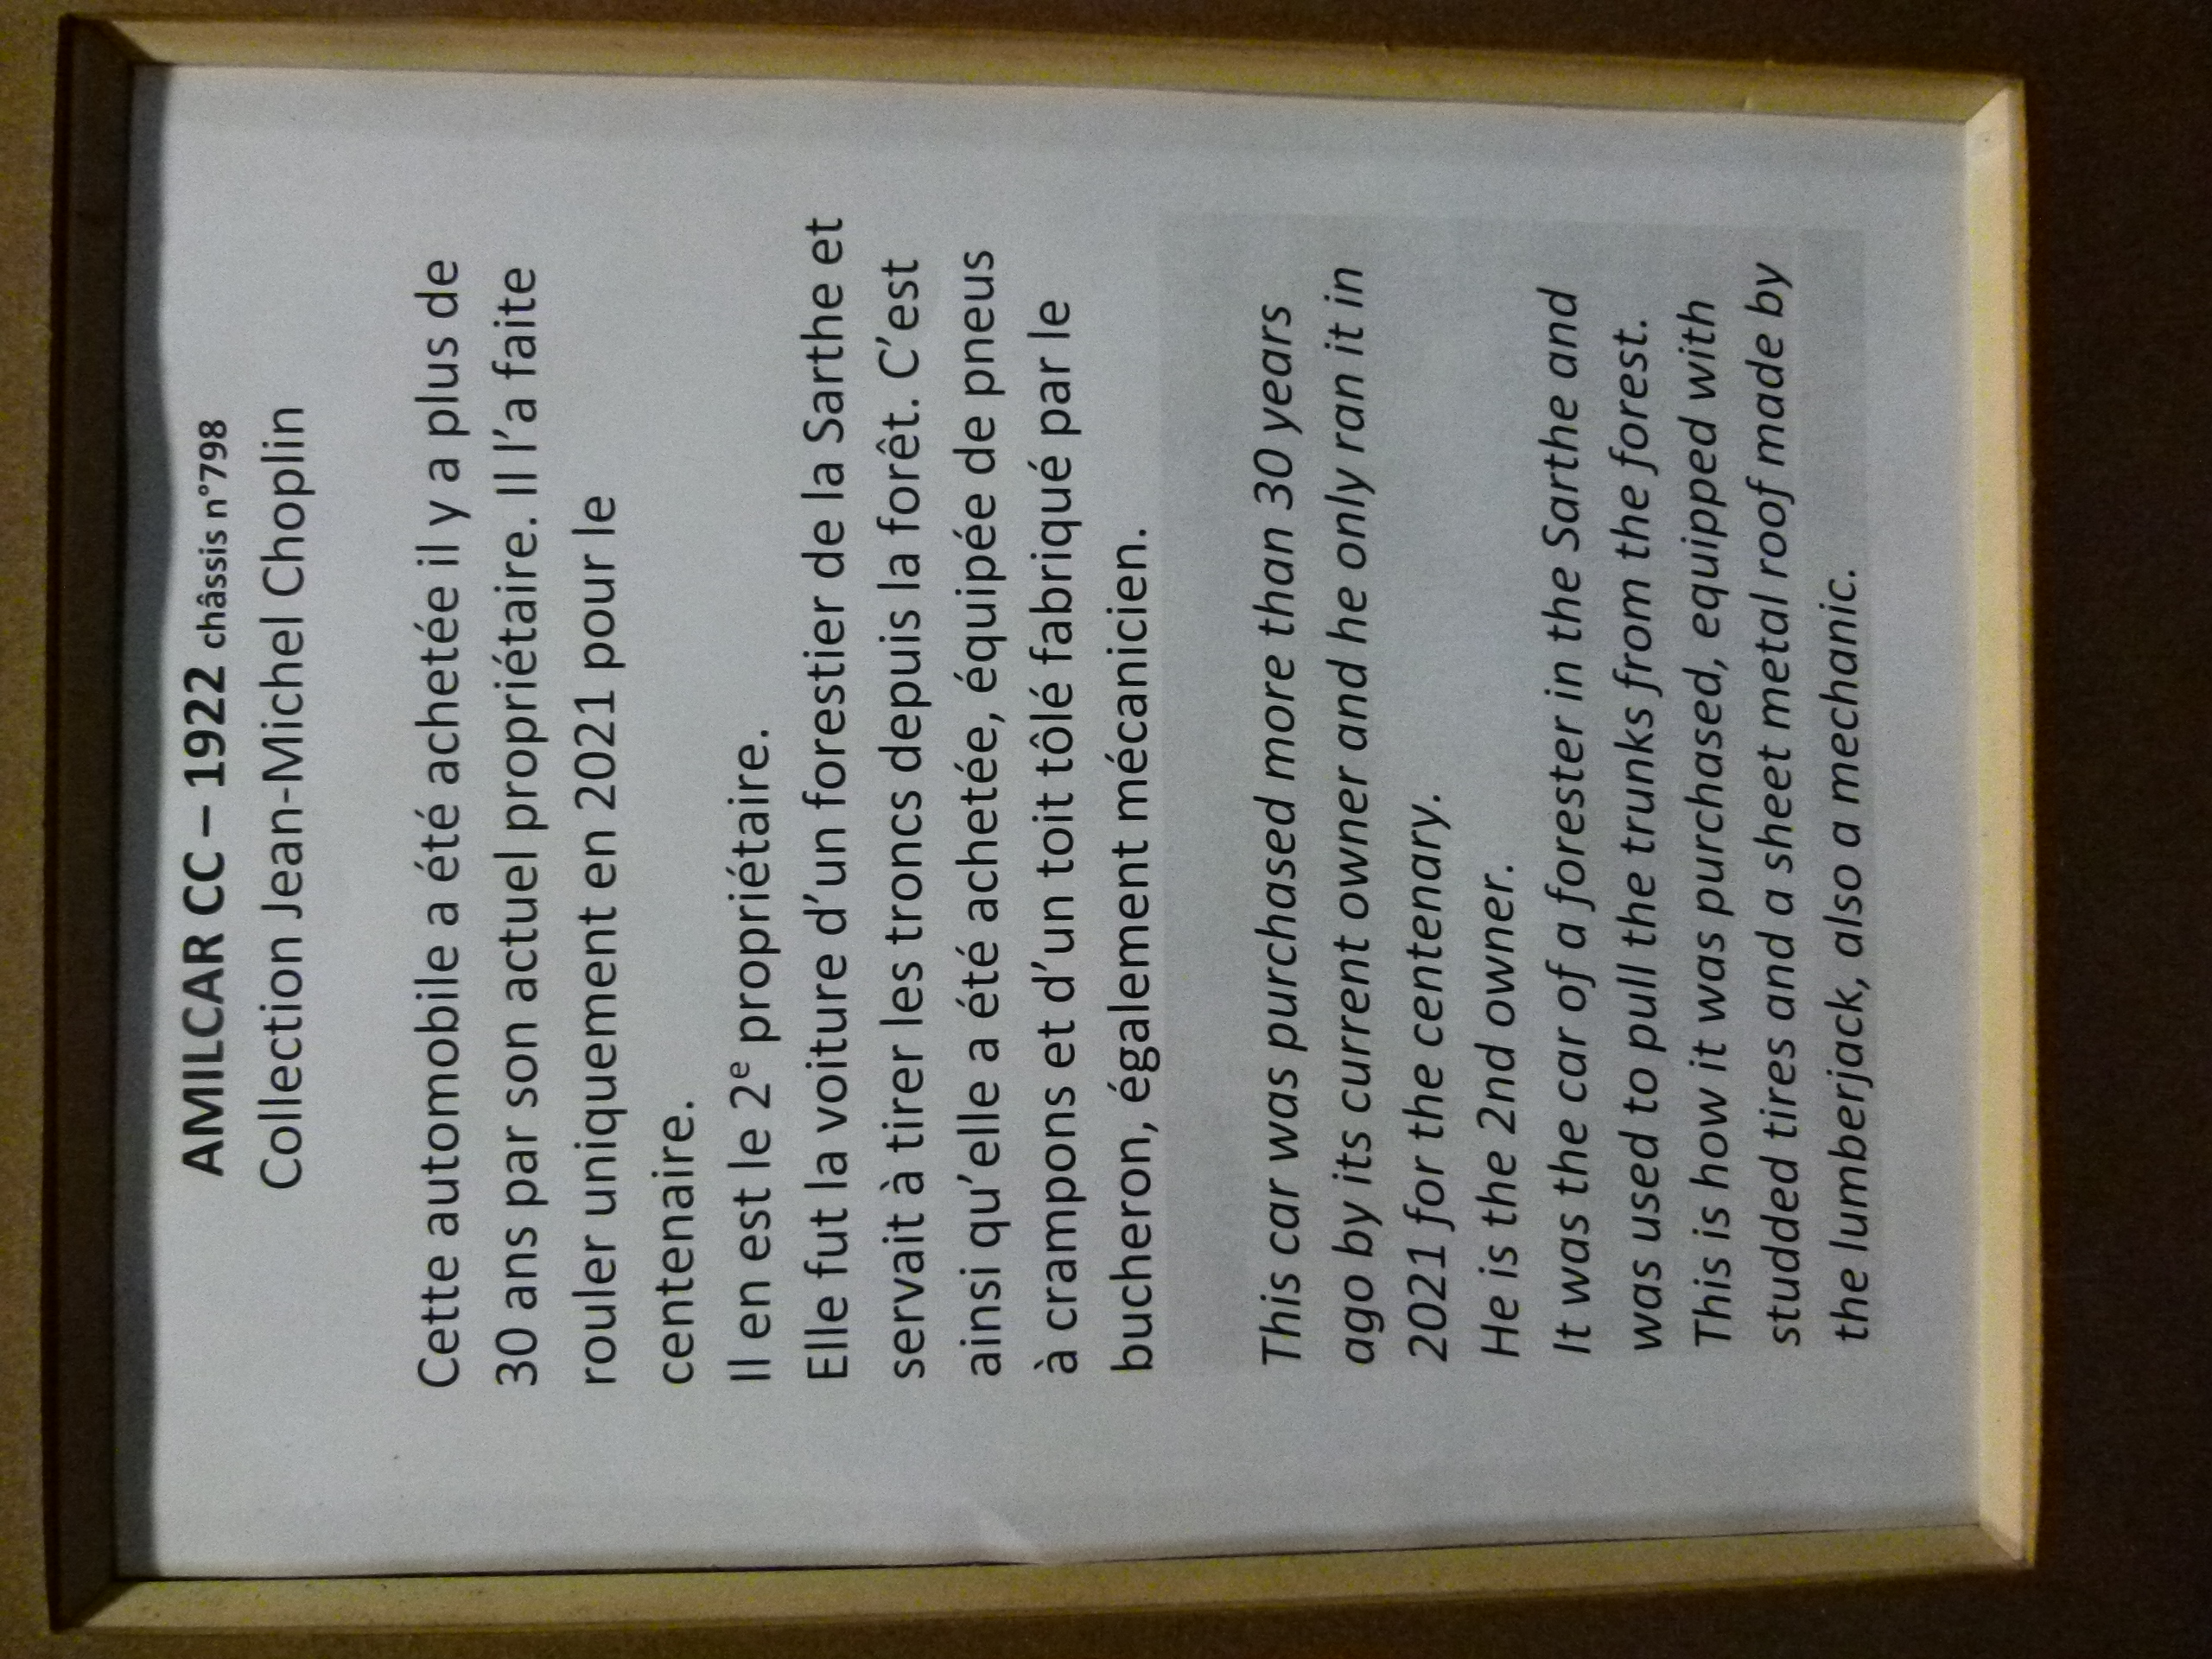 AMILCAR CC – 1922 châssis n°798
Collection Jean-Michel Choplin
Cette automobile a été achetée il y a plus de
30 ans par son actuel propriétaire. Il l'a faite
rouler uniquement en 2021 pour le
centenaire.
Il en est le 2e propriétaire.
Elle fut la voiture d'un forestier de la Sarthe et
servait à tirer les troncs depuis la forêt. C'est
ainsi qu'elle a été achetée, équipée de pneus
à crampons et d'un toit tôlé fabriqué par le
bucheron, également mécanicien.
This car was purchased more than 30 years
ago by its current owner and he only ran it in
2021 for the centenary.
He is the 2nd owner.
It was the car of a forester in the Sarthe and
was used to pull the trunks from the forest.
This is how it was purchased, equipped with
studded tires and a sheet metal roof made by
the lumberjack, also a mechanic.